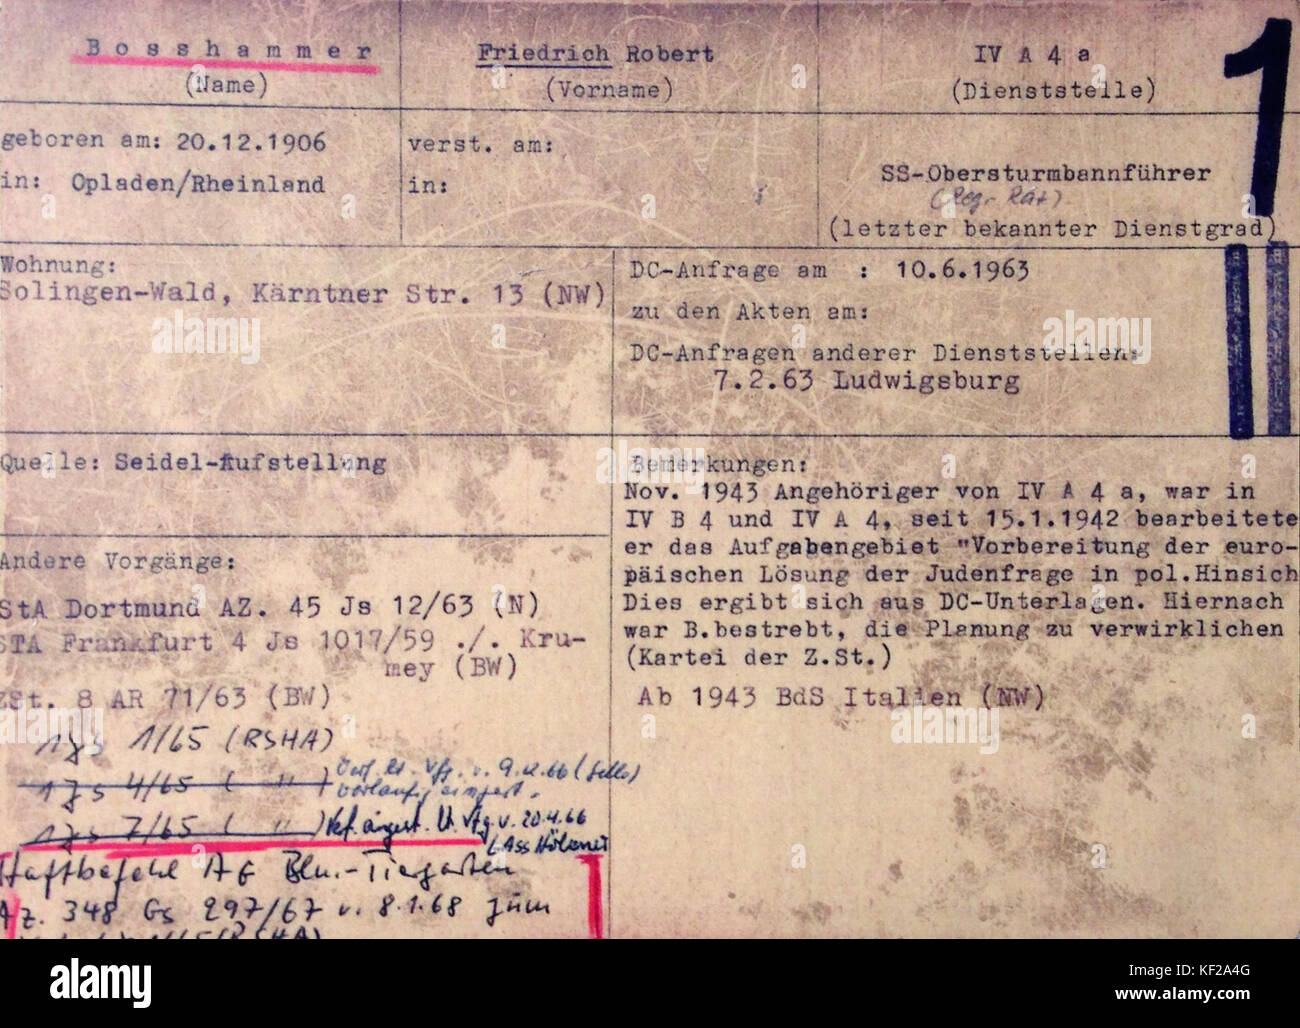 Bosshammer
(Name)
Friedrich Robert
(Vorname)
IV A 4 a
(Dienststelle)
1
geboren am: 20.12.1906
in: Opladen/Rheinland
verst. am:
in:
SS-Obersturmbannführer
(Reg. Rat)
(letzter bekannter Dienstgrad)
Wohnung:
Solingen-Wald, Kärntner Str. 13 (NW)
DC-Anfrage am : 10.6.1963
zu den Akten am:
DC-Anfragen anderer Dienststellen:
7.2.63 Ludwigsburg
Quelle: Seidel-Aufstellung
Andere Vorgänge:
StA Dortmund AZ. 45 Js 12/63 (N)
STA Frankfurt 4 Js 1017/59 ./. Kru-
mey (BW)
ZSt. 8 AR 71/63 (BW)
1 Js 1/65 (RSHA)
1 Js 4/65 ( " )
v. 9.12.66
vorläufig eingest.
1 Js 7/65 ( " )
v. 20.4.66
Haftbefehl AG Bln.-Tiergarten
Az. 348 Gs 297/67 v. 8.1.68 zum
1/65 (RSHA)
Bemerkungen:
Nov. 1943 Angehöriger von IV A 4 a, war in
IV B 4 und IV A 4, seit 15.1.1942 bearbeitete
er das Aufgabengebiet "Vorbereitung der euro-
päischen Lösung der Judenfrage in pol.Hinsich
Dies ergibt sich aus DC-Unterlagen. Hiernach
war B.bestrebt, die Planung zu verwirklichen
(Kartei der Z.St.)
Ab 1943 BdS Italien (NW)
alamy
Image ID: KF2A4G
www.alamy.com